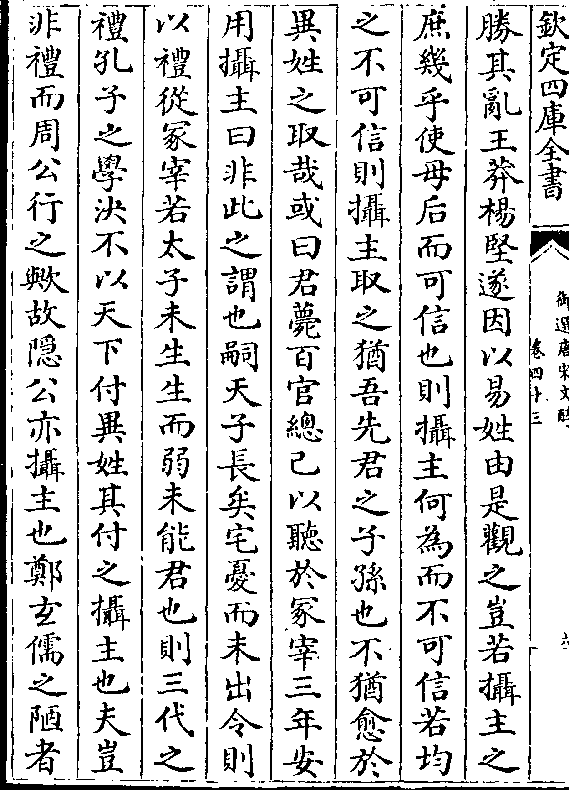 欽定四庫全書
御選唐宋文醇
卷四十三
勝其亂王莽楊堅遂因以易姓由是觀之豈若攝主之
庶幾乎使母后而可信也則攝主何為而不可信若均
之不可信則攝主取之猶吾先君之子孫也不猶愈於
異姓之取哉或曰君薨百官總己以聽於冢宰三年安
用攝主曰非此之謂也嗣天子長矣宅憂而未出令則
以禮從冢宰若太子未生生而弱未能君也則三代之
禮孔子之學決不以天下付異姓其付之攝主也夫豈
非禮而周公行之歟故隱公亦攝主也鄭玄儒之陋者